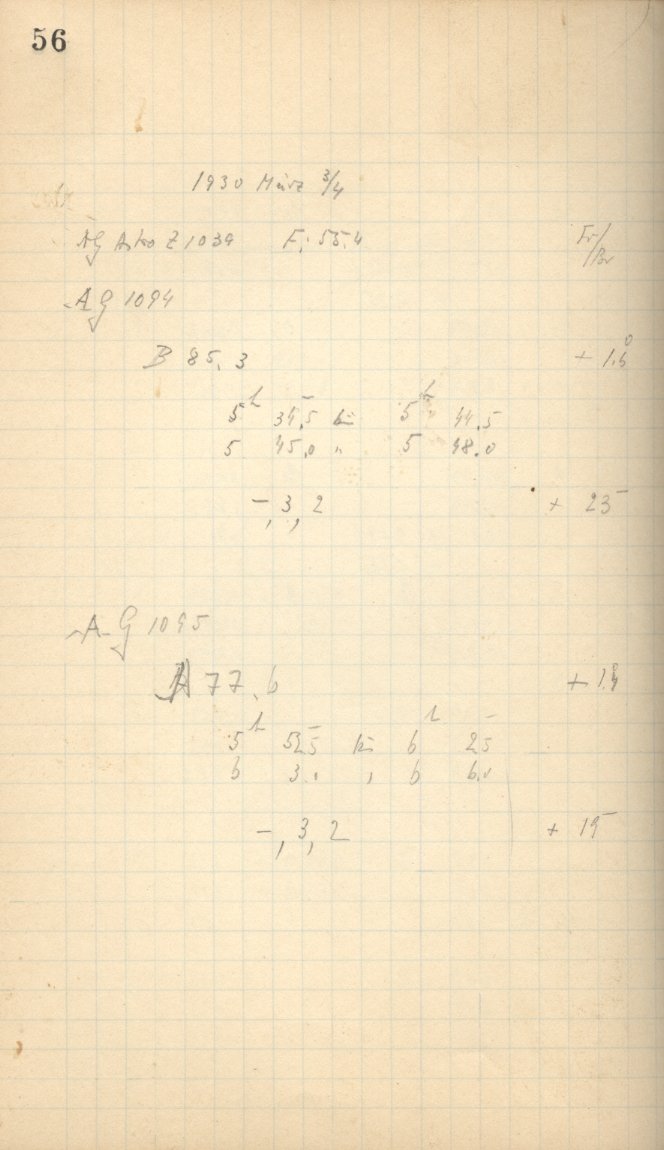 56
1930 März 3/4
AG Astro Z 1039 F: 55.4
AG 1094
B 85.3 +1.6
5h 34.5 bis 5h 44.5
5 45.0 " 5 48.0
-, 3, 2 + 25
AG 1095
A 77.6
5h 52.5 bis 6h 2.5
6 3.0 , 6 6.0
-, 3, 2 + 15